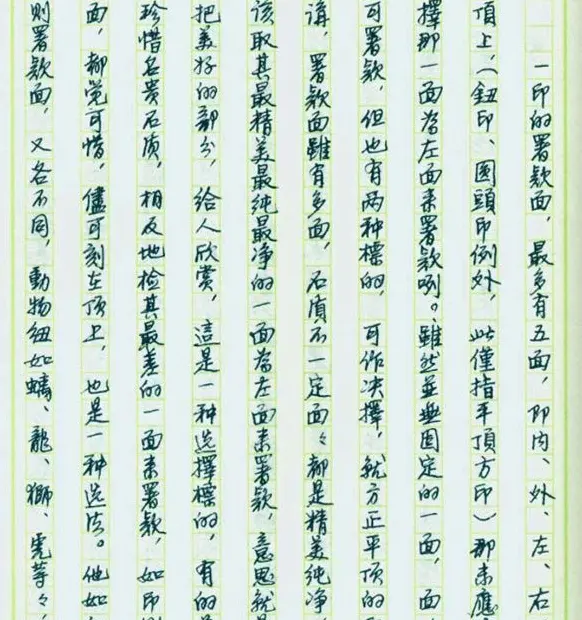 一印的署款面，最多有五面，即内、外、左、右
頂上，（鈕印、圓頭印例外，此僅指平頂方印）那末應
擇那一面為左面来署款咧。雖然並無固定的一面，面
可署款，但也有两种標的，可作决擇，就方正平頂的
講，署款面雖有多面，石质不一定面々都是精美纯净
該取其最精美最纯最净的一面為左面来署款，意思就是
把美好的部分，给人欣赏，這是一种选擇標的，有的是
珍惜名贵石质，相反地检其最差的一面来署款，如印側
面，都觉可惜，儘可刻在顶上，也是一种选法。他如
則署款面，又各不同，動物纽如螭、龍、獅、虎等々，